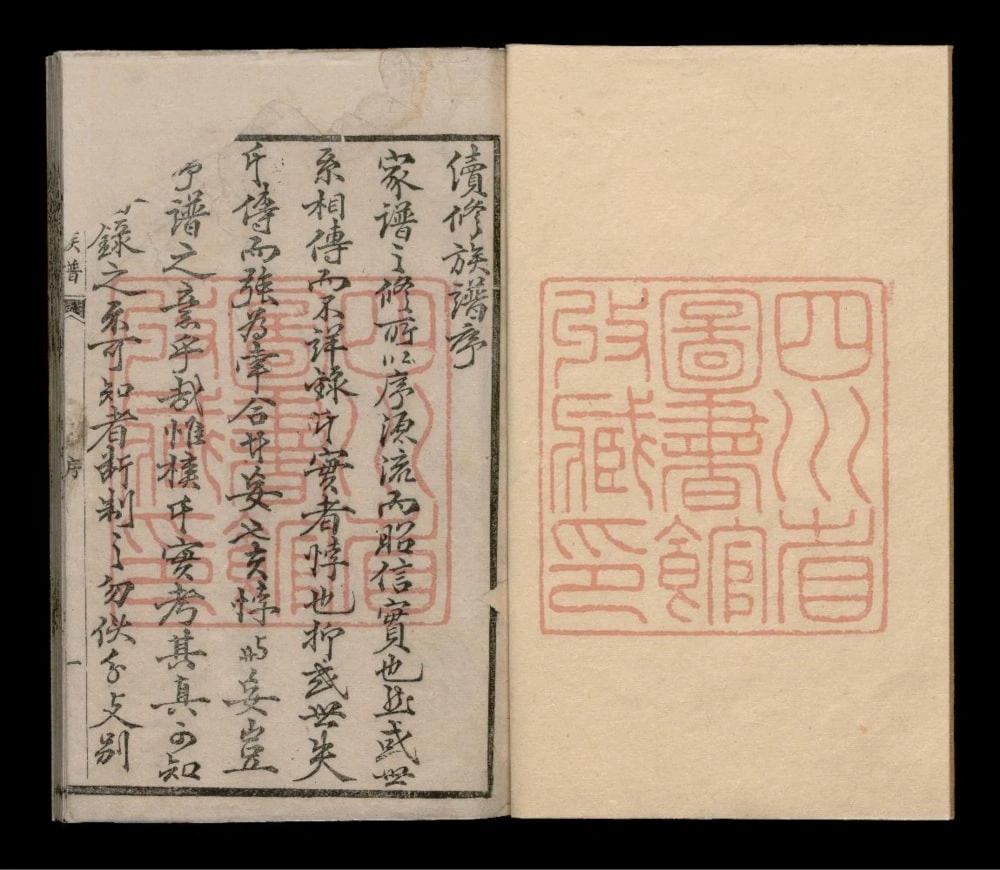 四川省
圖書館
收藏印
續修族譜序
家譜之修所以序源流而昭信實也然或世
系相傳而不詳錄其實者悖也抑或世失
其傳而強為牽合者妄也夫悖與妄豈
譜之意乎哉惟核其實考其真可知
錄之不可知者斷制之勿佚分支別
族譜
序
一